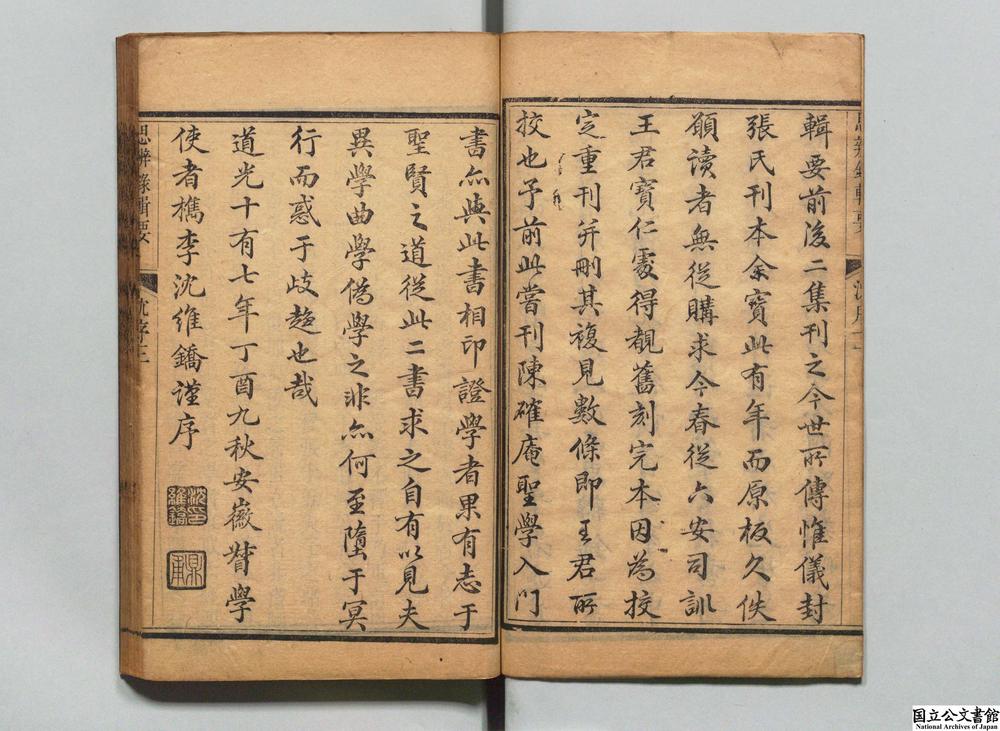 輯要前後二集刊之今世所傳惟儀封
張氏刊本余寶此有年而原板久佚
願讀者無從購求今春從六安司訓
王君寶仁處得覩舊刻完本因為挍
定重刊并刪其複見數條即王君所
挍也予前此嘗刊陳確庵聖學入門
書亦與此書相印證學者果有志于
聖賢之道從此二書求之自有以見夫
異學曲學僞學之非亦何至墮于冥
行而惑于歧趨也哉
道光十有七年丁酉九秋安徽督學
使者檇李沈維鐈謹序
沈印維鐈
鼎甫
思辨錄輯要
沈序三
国立公文書館
National Archives of Japan